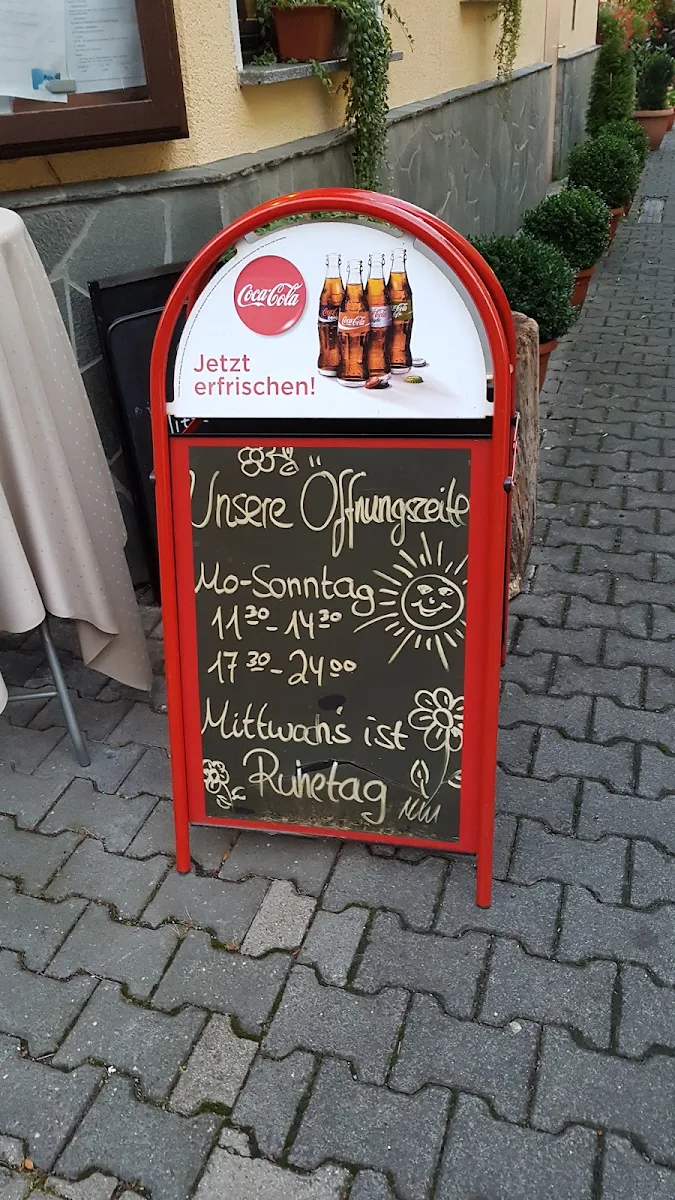 Coca-Cola
Jetzt
erfrischen!
Unsere Öffnungszeite
Mo-Sonntag
11³⁰-14³⁰
17³⁰-24⁰⁰
Mittwoch's ist
Ruhetag